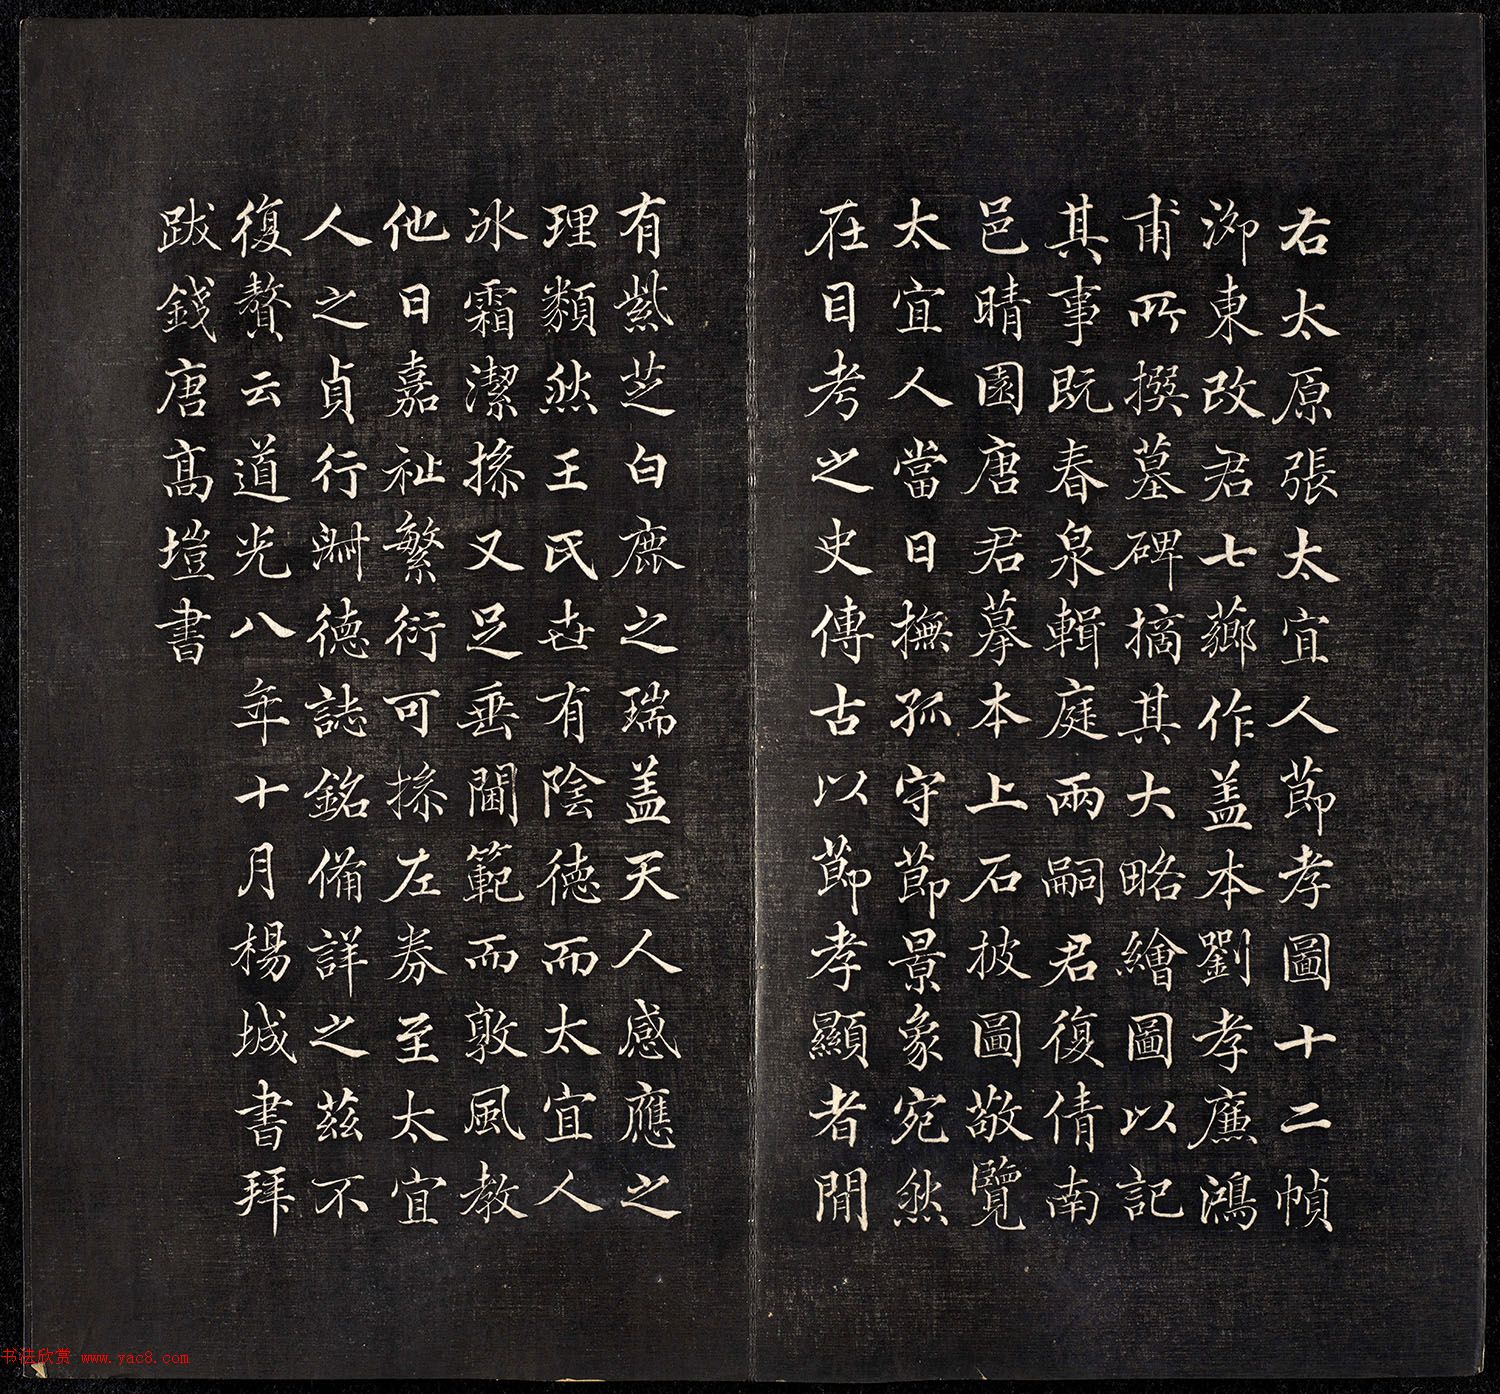 右太原張太宜人莭孝圖十二幀
泖東改君七薌作盖本劉孝廉鴻
甫所撰墓碑摘其大略繪圖以記
其事既春泉輯庭兩嗣君復倩南
邑晴園唐君摹本上石披圖敬覽
太宜人當日撫孤守莭景象宛然
在目考之史傳古以莭孝顯者閒
有紫芝白鹿之瑞盖天人感應之
理類然王氏世有陰德而太宜人
冰霜潔操又足垂閫範而敦風教
他日嘉祉繁衍可操左券至太宜
人之貞行淑德誌銘備詳之茲不
復贅云道光八年十月楊城書拜
跋錢唐高塏書
书法欣赏 www.yac8.com